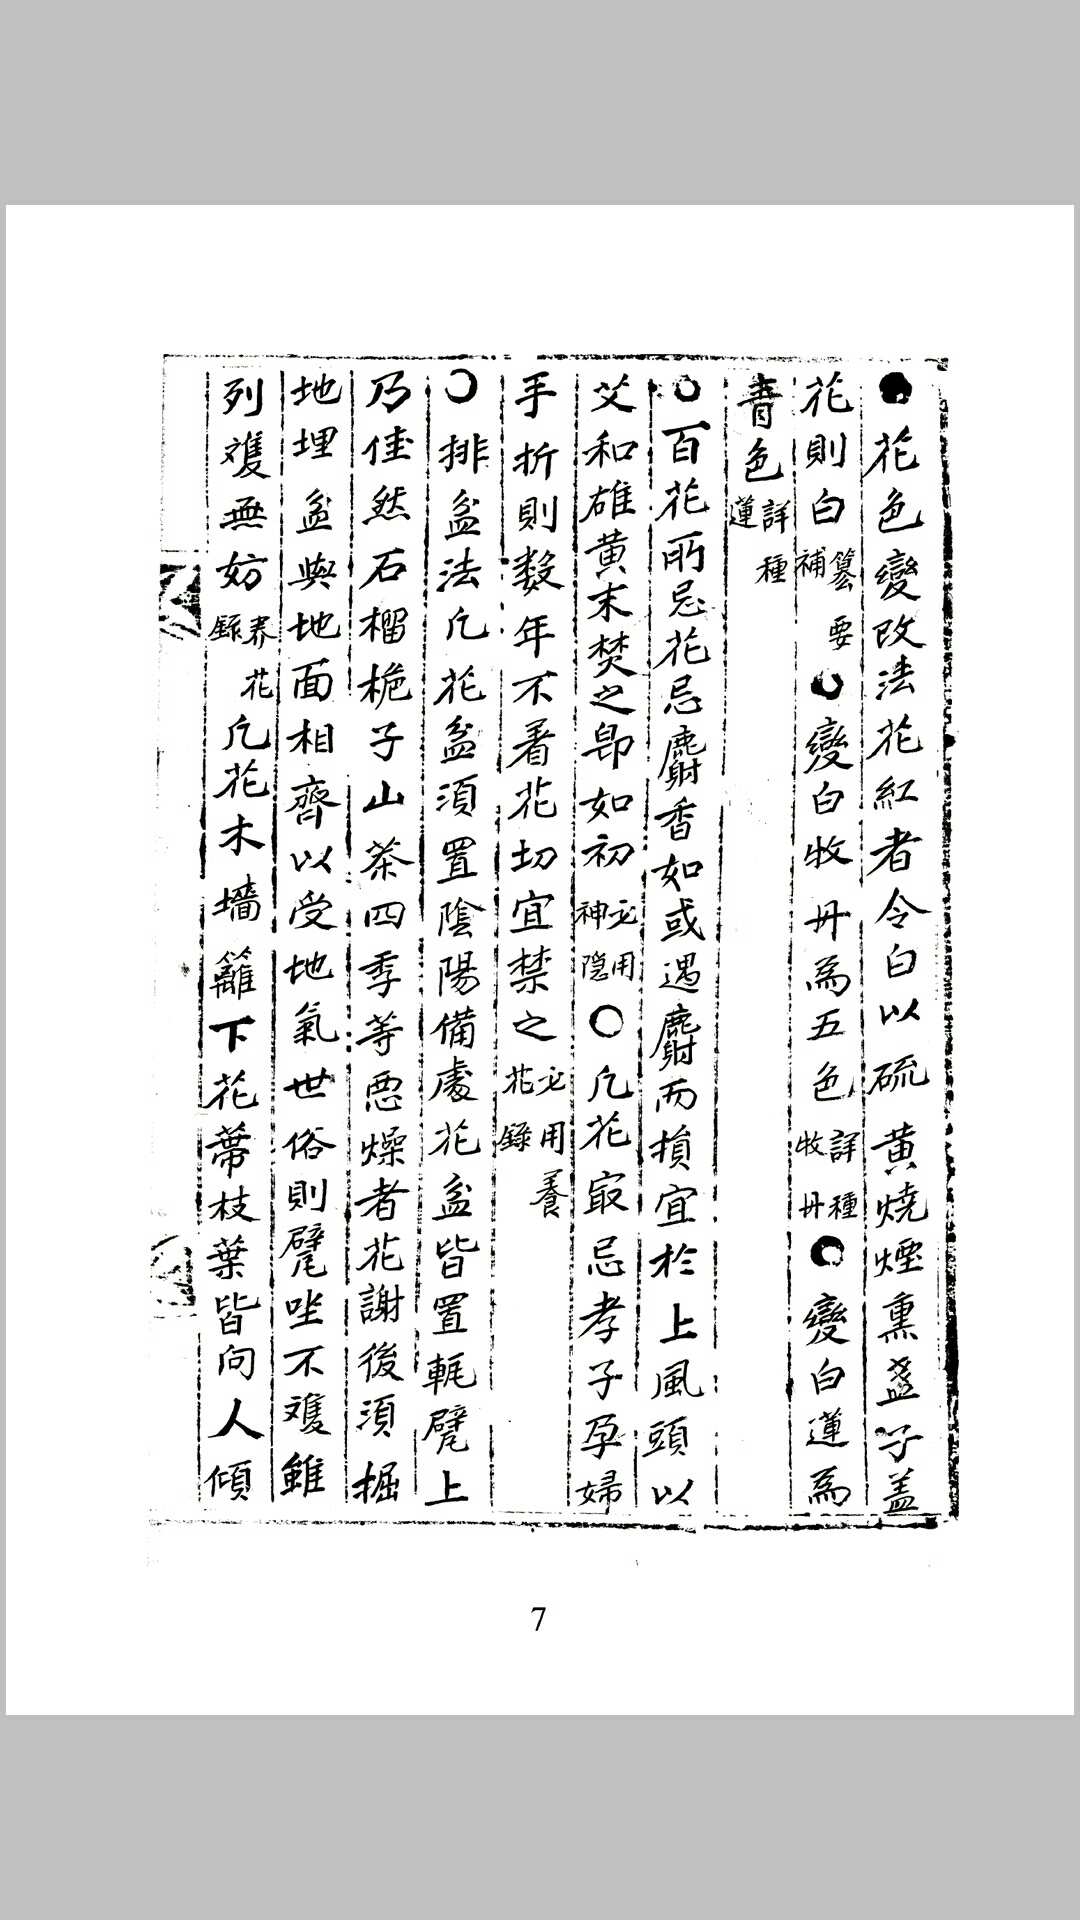 ●花色變改法花紅者令白以硫黄燒煙熏盞子盖
花則白纂要補●變白牧丹為五色詳種牧丹●變白蓮為
青色詳種蓮
○百花所忌花忌麝香如或遇麝而損宜於上風頭以
艾和雄黄末焚之即如初必用神隱○凡花㝡忌孝子孕婦
手折則数年不着花切宜禁之必用養花錄
○排盆法凡花盆須置陰陽備處花盆皆置甎甓上
乃佳然石榴梔子山茶四季等惡燥者花謝後須掘
地埋盆與地面相齊以受地氣世俗則甓坐不雙雖
列雙無妨养花錄凡花木墻籬下花蔕枝葉皆向人傾
7